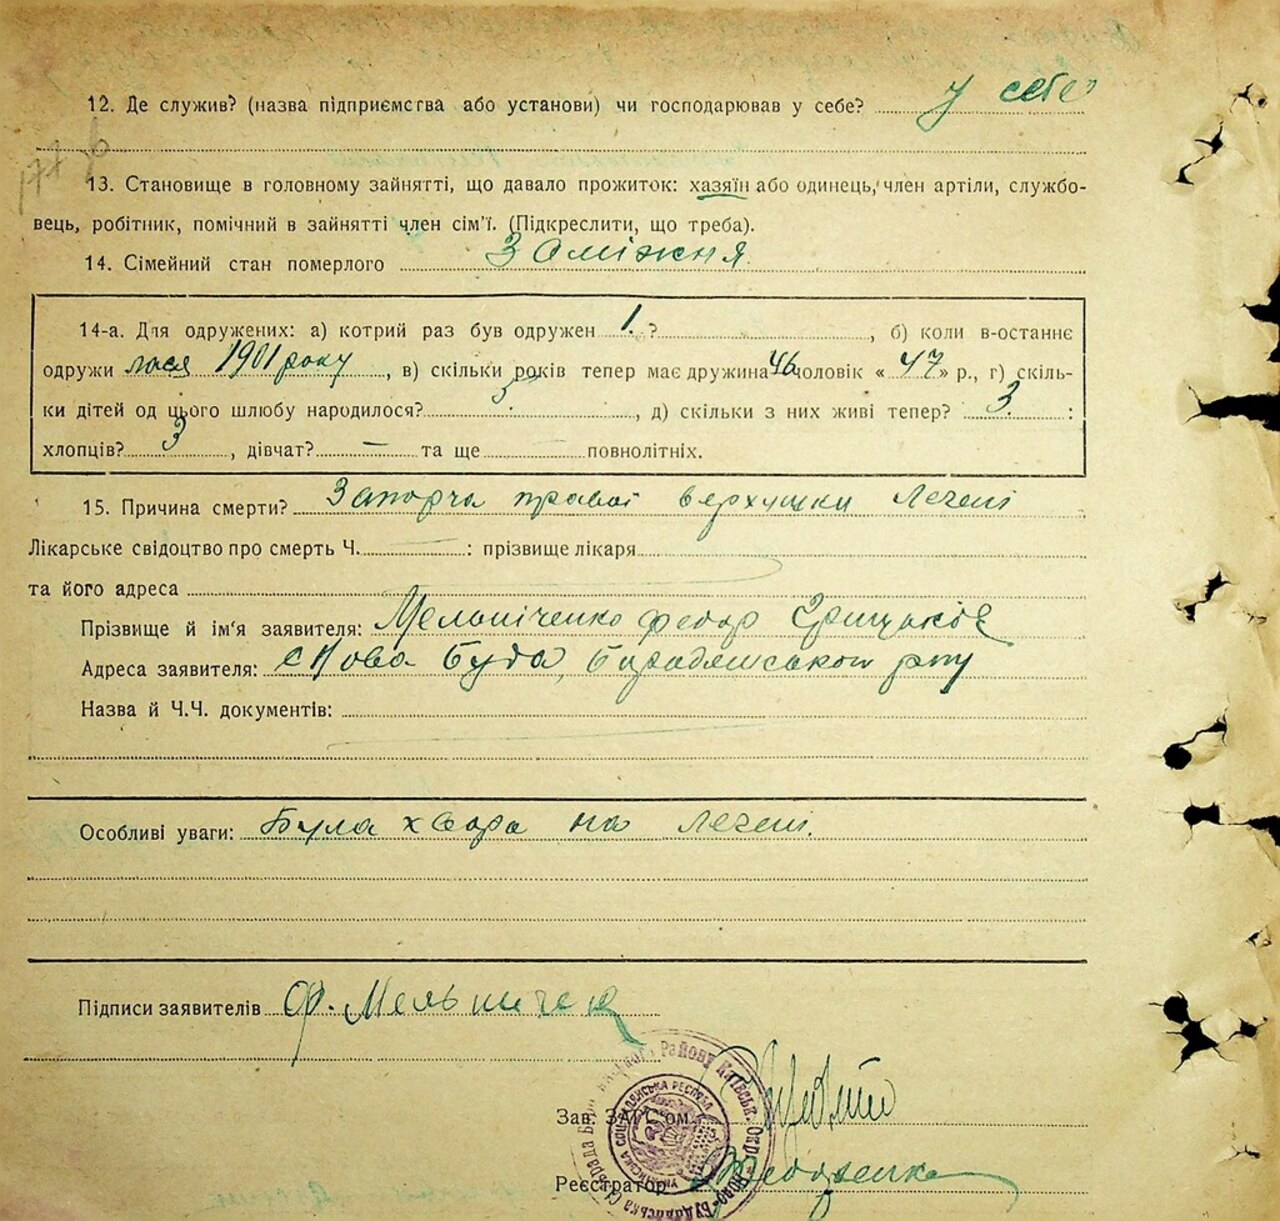 12. Де служив? (назва підприємства або установи) чи господарював у себе? у себе
13. Становище в головному зайнятті, що давало прожиток: хазяїн або одинець, член артілі, службо-
вець, робітник, помічний в зайнятті член сім'ї. (Підкреслити, що треба).
14. Сімейний стан померлого Заміжня
14-а. Для одружених: а) котрий раз був одружен 1. ?, б) коли в-останнє
одружи лася 1901 року, в) скільки років тепер має дружина 46 чоловік « 47 » р., г) скіль-
ки дітей од цього шлюбу народилося? 5., д) скільки з них живі тепер? 3. :
хлопців? 3, дівчат? — та ще повнолітніх.
15. Причина смерти? правої верхушки Легені
Лікарське свідоцтво про смерть Ч. : прізвище лікаря
та його адреса
Прізвище й ім'я заявителя: Мельніченко Федор
Адреса заявителя: с Нова Буда, рну
Назва й Ч.Ч. документів:
Особливі уваги: Була хвора на легені.
Підписи заявителів Ф. Мельничен
Зав. ЗАГС'ом
Реєстратор